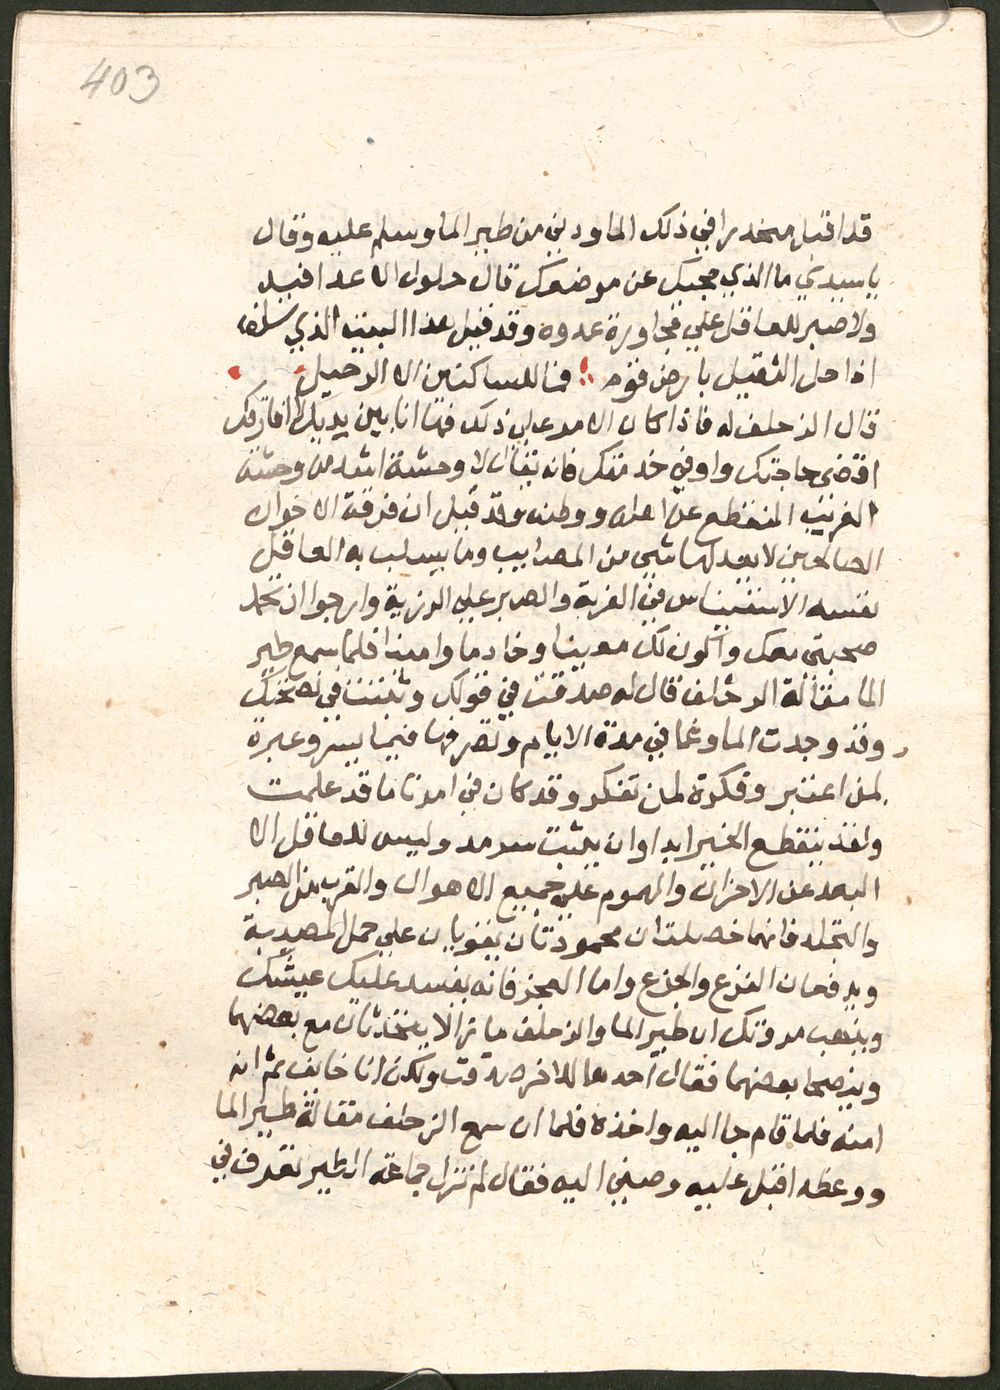 403
قد اقبل منحدرا في ذلك الما ودني من طير الما وسلم عليه وقال
يا سيدي ما الذي حجبك عن موضعك قال حلول الاعدا فيه
ولا صبر للعاقل علي مجاورة عدوه وقد قيل هذا البيت الذي
اذا حل الثقيل بارض قوم ؛ فما للساكنين الا الرحيل
قال الزحلف له فاذا كان الامر علي ذلك فها انا بين يديك لا افارقك
اقضي حاجتك واوفي خدمتك فانه يقال لا وحشة اشد من وحشة
الغريب المنقطع عن اهله ووطنه وقد قيل ان فرقة الاخوان
الصالحين لا يعدلها شي من المصايب وما يسلب به العاقل
نفسه الاستيناس في الغربة والصبر علي الرزية وارجوا ان تحمد
صحبتي معك واكون لك معينا وخادما وامينا فلما سمع طير
الما مقالة الزحلف قال له صدقت في قولك في نصحك
وقد وجدت الما وغما في مدة الايام وتصرفها فيما يسر وعبرة
لمن اعتبر وفكرة لمن تفكر وقد كان في امرنا ما قد علمت
ولقد ينقطع الخير ابدا وان يلبث سرمد وليس للعاقل الا
البعد عن الاحزان والهموم علي جميع الاهوال والقرب من الصبر
والتجلد فانهما خصلتان محمودتان يقويان علي حمل المصيبة
ويدفعان الفزع والجزع واما العجز فانه يفسد عليك عيشك
ويذهب مروتك ان طير الما والزحلف ما زالا يتحدثان مع بعضهما
وينصحا بعضهما فقال احدهما للاخر صدقت ولكن انا خايف ثم انه
امنه فلما قام جا اليه واخذه فلما ان سمع الزحلف مقالة طير الما
ووعظه اقبل عليه وصغي اليه فقال لم تزل جماعة الطير تعرف في